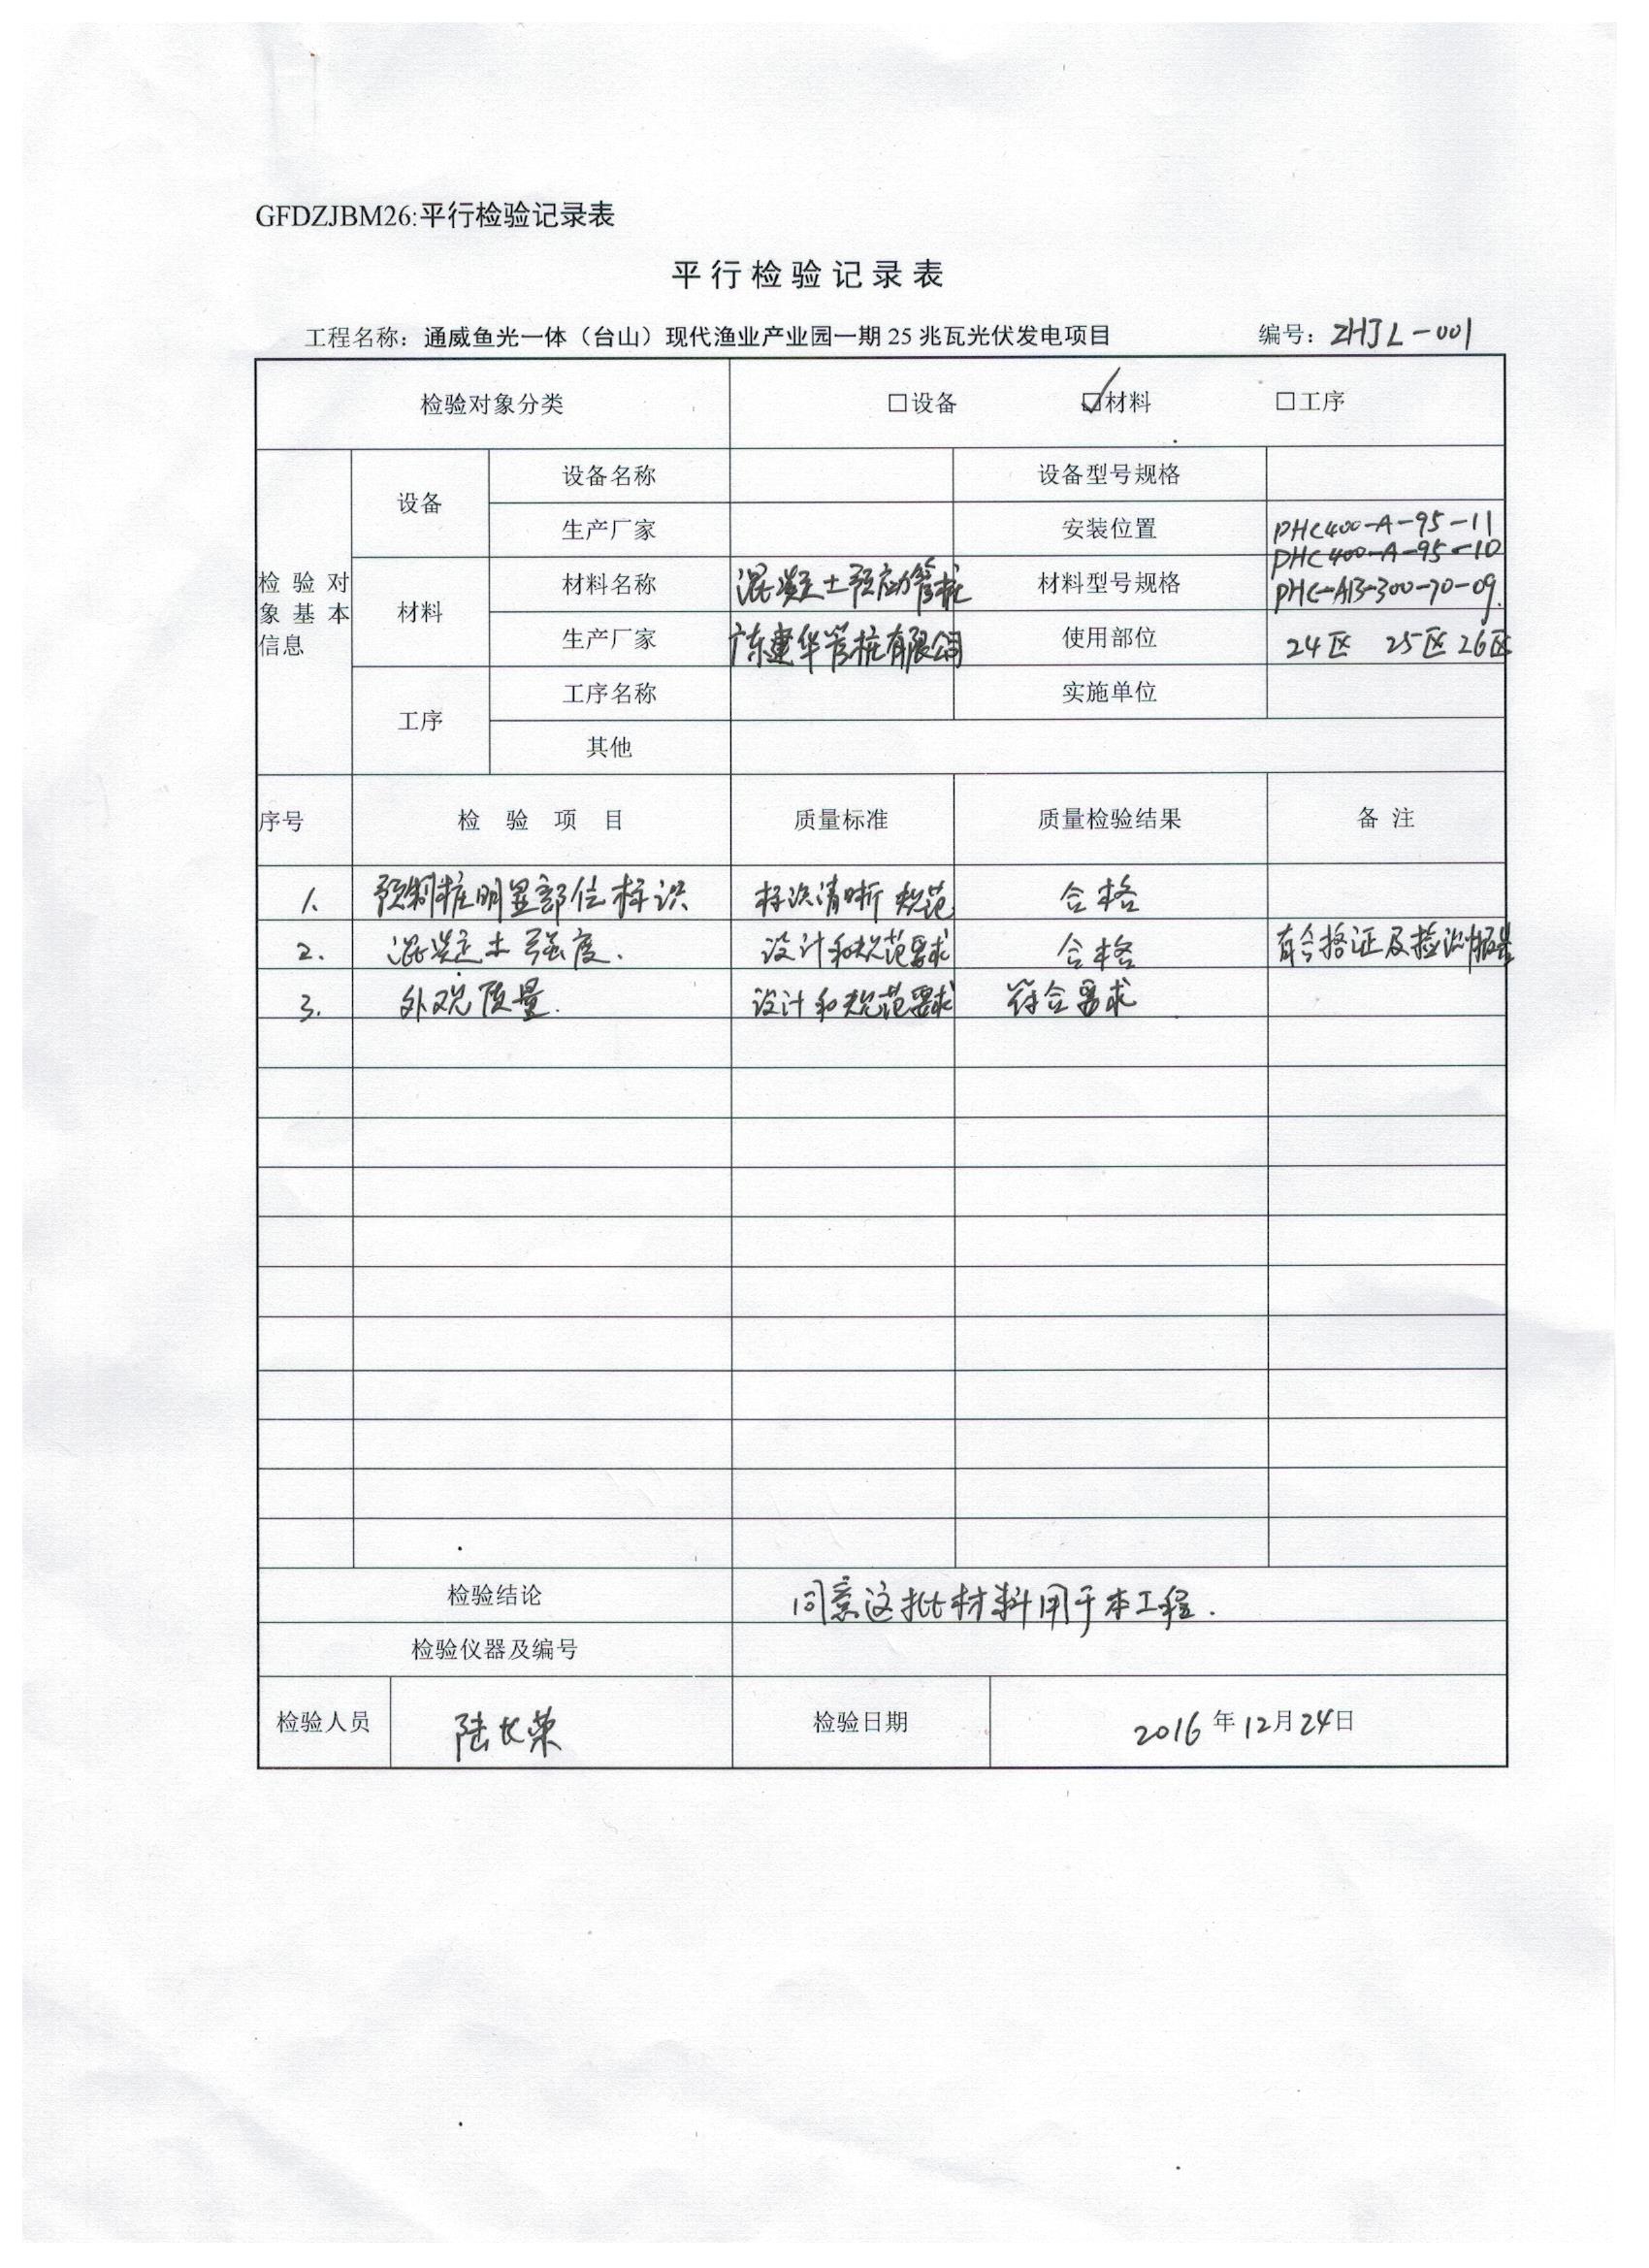 GFDZJBM26:平行检验记录表
平行检验记录表
工程名称：通威鱼光一体（台山）现代渔业产业园一期 25 兆瓦光伏发电项目 编号：ZHJL-001
检验对象分类 □设备 ☑材料 □工序
检验对象基本信息
设备 设备名称 设备型号规格
生产厂家 安装位置
PHC400-A-95-11
PHC400-A-95-10
材料 材料名称 混凝土预应力管桩 材料型号规格 PHC-AB-300-70-09.
生产厂家 广东建华管桩有限公司 使用部位 24区 25区 26区
工序 工序名称 实施单位
其他
序号 检验项目 质量标准 质量检验结果 备注
1. 预制桩明显部位标识 标识清晰 规范 合格
2. 混凝土强度. 设计和规范要求 合格 有合格证及检测报告
3. 外观质量. 设计和规范要求 符合要求
检验结论 同意这批材料用于本工程.
检验仪器及编号
检验人员 陆长荣 检验日期 2016年12月24日